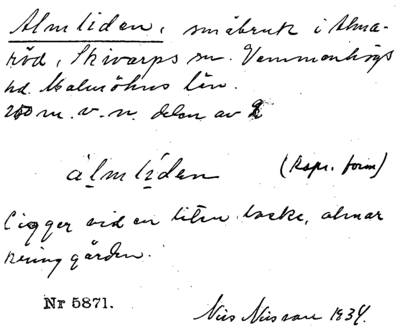 Almliden, småbruk i Alma-
röd, Skivarps sn. Vemmenhögs
hd. Malmöhus län.
200 m. v. n. delen av 2
álmliden (Rspr. form)
Ligger vid en liten backe, almar
kring gården.
Nr 5871.
Nils Nilsson 1934.